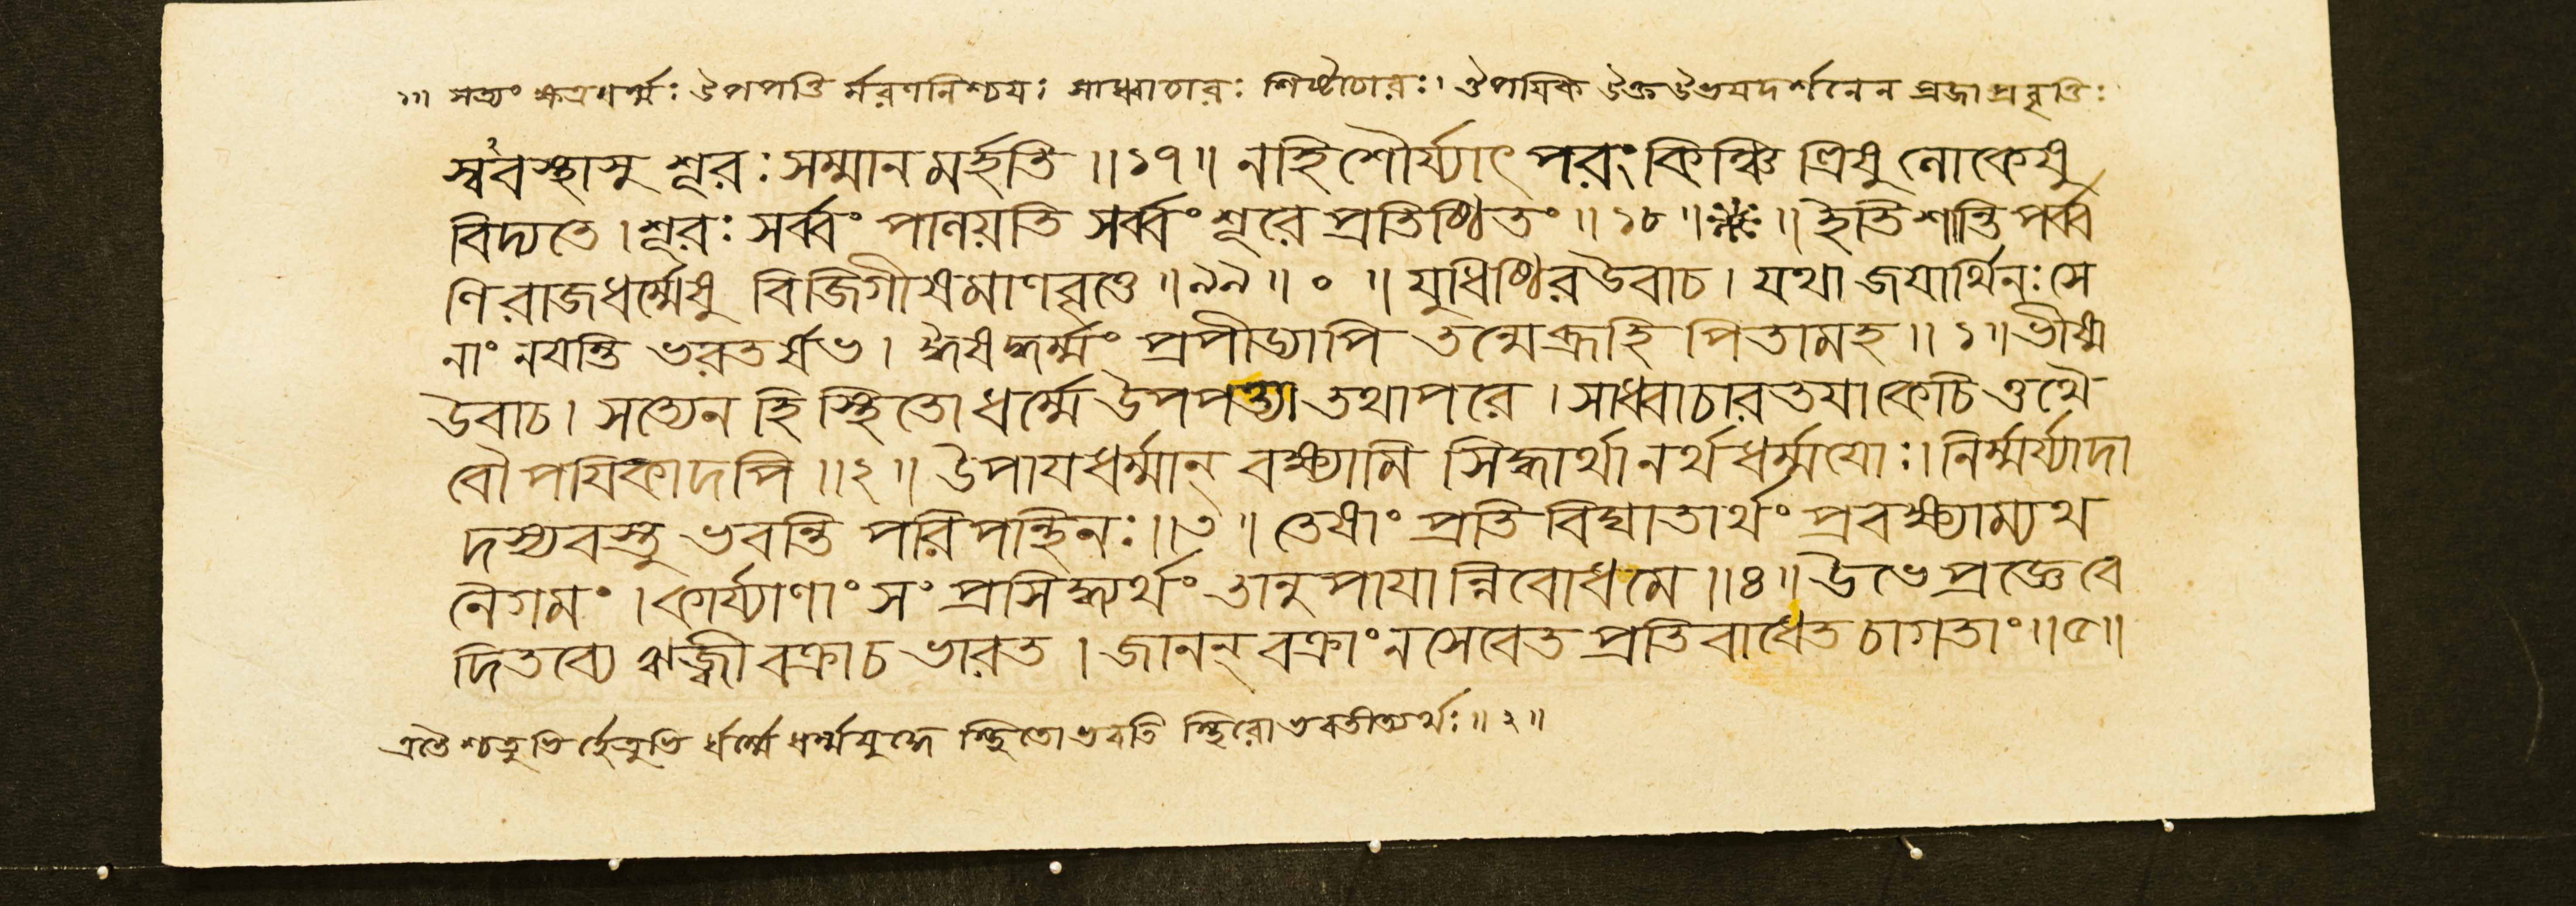 ১।। সত্যং ক্ষত্রধর্ম্মঃ উপপত্তি র্মরণনিশ্চয়ঃ সাধ্বাচারঃ শিষ্টাচারঃ। ঔপয়িক উক্তউভয়দর্শনেন প্রজাপ্রবৃত্তিঃ
স্ববস্থাসু শূরঃ সম্মানমর্হতি ॥১৭॥ নহিশৌর্য্যাৎ পরংকিঞ্চি ত্রিষুলোকেষু
বিদ্যতে।শূরঃ সর্ব্বং পালয়তি সর্ব্বং শূরে প্রতিষ্ঠিতং ॥১৮॥ ॥ইতিশান্তিপর্ব্ব
ণিরাজধর্ম্মেষু বিজিগীষমাণবৃত্তে ॥৯৯॥ ০ ॥ যুধিষ্ঠিরউবাচ। যথা জয়ার্থিনঃসে
নাং নয়ন্তি ভরতর্ষভ। ঈষদ্ধর্ম্মং প্রপীড্যাপি তন্মেব্রূহি পিতামহ ॥১॥ভীষ্ম
উবাচ। সত্যেন হি স্থিতো ধর্ম্মে উপপত্ত্যা তথাপরে। সাধ্বাচারতয়াকেচি ত্তথৈ
বৌপয়িকাদপি ॥২॥ উপায়ধর্ম্মান্ বক্ষ্যামি সিদ্ধার্থানর্থধর্ম্ময়োঃ। নির্ম্মর্য্যাদা
দস্যবস্তু ভবন্তি পরিপন্থিনঃ॥৩॥ তেষাং প্রতিবিঘাতার্থং প্রবক্ষ্যাম্যথ
নৈগমং। কার্য্যাণাং সংপ্রসিদ্ধ্যর্থং তানুপায়ান্নিবোধমে ॥৪॥উভেপ্রজ্ঞেবে
দিতব্যে ঋজ্বীবক্রাচ ভারত। জানন্ বক্রাং নসেবেত প্রতিবাধেতচাগতাং॥৫॥
এতৈশ্চতুর্ভির্হেতুভি র্ধর্ম্মে ধর্ম্মযুদ্ধে স্থিতো ভবতি স্থিরো ভবতীত্যর্থঃ॥২॥